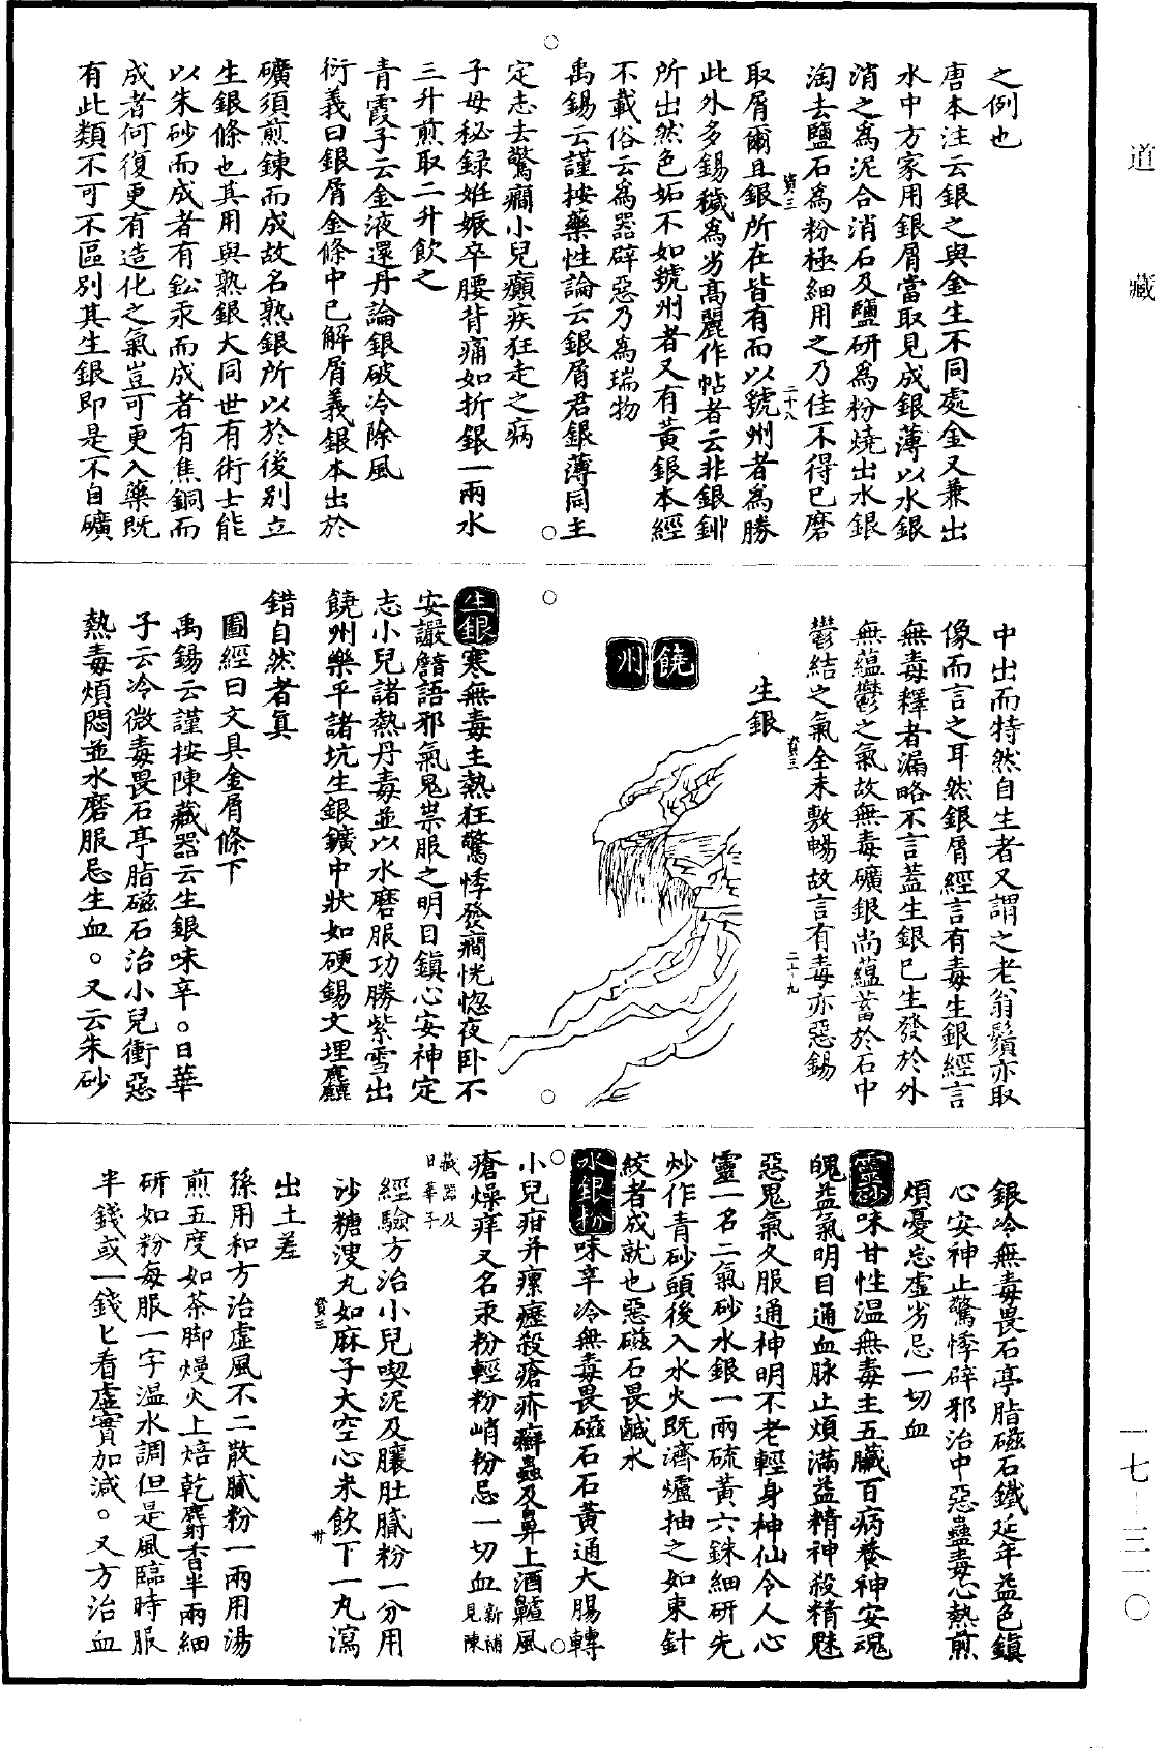 道藏
之例也
唐本注云銀之與金生不同處金又兼出
水中方家用銀屑當取見成銀薄以水銀
消之為泥合消石及鹽研為粉燒出水銀
淘去鹽石為粉極細用之乃佳不得已磨
取屑爾且銀所在皆有而以虢州者為勝
此外多錫穢為劣高麗作帖者云非銀釧
所出然色妬不如虢州者又有黃銀本經
不載俗云為器辟惡乃為瑞物
禹錫云謹按藥性論云銀屑君銀薄同主
定志去驚癇小兒癲疾狂走之病
子母秘録姙娠卒腰背痛如折銀一兩水
三升煎取二升飲之
青霞子云金液還丹論銀破冷除風
衍義曰銀屑金條中已解屑義銀本出於
礦須煎鍊而成故名熟銀所以於後別立
生銀條也其用與熟銀大同世有術士能
以朱砂而成者有鈆汞而成者有焦銅而
成者何復更有造化之氣豈可更入藥既
有此類不可不區別其生銀即是不自礦
資三
二十八
中出而特然自生者又謂之老翁鬚亦取
像而言之耳然銀屑經言有毒生銀經言
無毒釋者漏略不言蓋生銀已生發於外
無蘊鬱之氣故無毒礦銀尚蘊蓄於石中
鬱結之氣全未敷暢故言有毒亦惡錫
資三
二十九
生銀
饒州
生銀寒無毒主熱狂驚悸發癇恍惚夜卧不
安譀䛳語邪氣鬼祟服之明目鎮心安神定
志小兒諸熱丹毒並以水磨服功勝紫雪出
饒州樂平諸坑生銀鑛中狀如硬錫文理麤
錯自然者真
圖經曰文具金屑條下
禹錫云謹按陳藏器云生銀味辛。日華
子云冷微毒畏石亭脂磁石治小兒衝惡
熱毒煩悶並水磨服忌生血。又云朱砂
銀冷無毒畏石亭脂磁石鐵延年益色鎮
心安神止驚悸辟邪治中惡蠱毒心熱煎
煩憂忘虛劣忌一切血
靈砂味甘性溫無毒主五臟百病養神安魂
魄益氣明目通血脉止煩滿益精神殺精魅
惡鬼氣久服通神明不老輕身神仙令人心
靈一名二氣砂水銀一兩硫黃六銖細研先
炒作青砂頭後入水火既濟爐抽之如束針
絞者成就也惡磁石畏鹹水
水銀粉味辛冷無毒畏磁石石黃通大腸轉
小兒疳并瘰癧殺瘡疥癬蟲及鼻上酒齇風
瘡燥痒又名汞粉輕粉峭粉忌一切血新補見陳
藏器及日華子
經驗方治小兒喫泥及臁肚膩粉一分用
沙糖溲丸如麻子大空心米飲下一丸瀉
出土差
孫用和方治虛風不二散膩粉一兩用湯
煎五度如茶脚熳火上焙乾麝香半兩細
研如粉每服一字溫水調但是風臨時服
半錢或一錢匕看虛實加減。又方治血
資三
卅
一七—三一〇